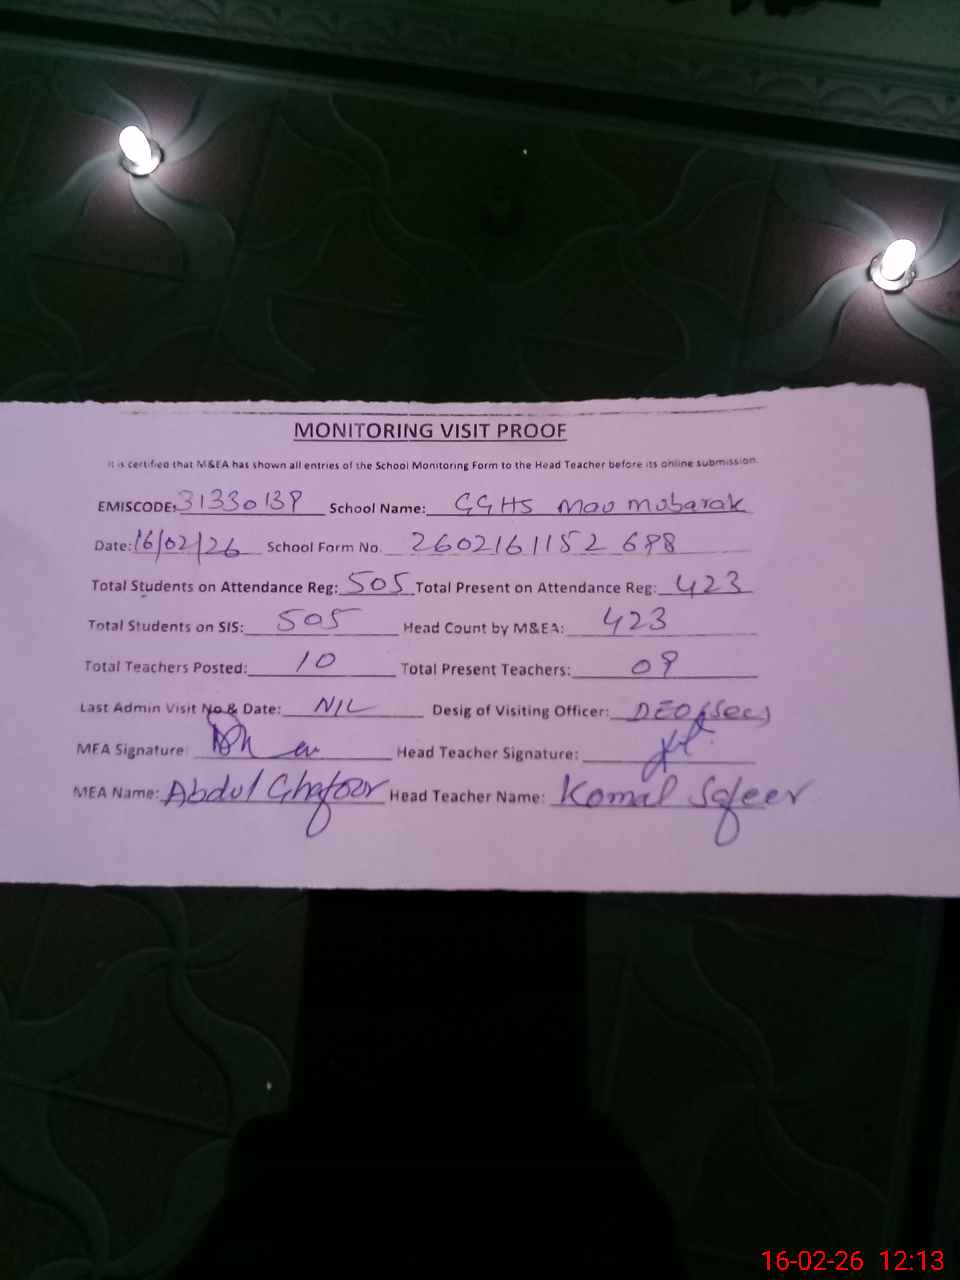 MONITORING VISIT PROOF
It is certified that M&EA has shown all entries of the School Monitoring Form to the Head Teacher before its online submission.
EMISCODE: 31330139 School Name: GGHS Mau Mubarak
Date: 16/02/26 School Form No. 2602161152 698
Total Students on Attendance Reg: 505 Total Present on Attendance Reg: 423
Total Students on SIS: 505 Head Count by M&EA: 423
Total Teachers Posted: 10 Total Present Teachers: 09
Last Admin Visit No & Date: NIL Desig of Visiting Officer: DEO (Sec)
MEA Signature: Head Teacher Signature:
MEA Name: Abdul Ghafoor Head Teacher Name: Komal Safeer
16-02-26 12:13